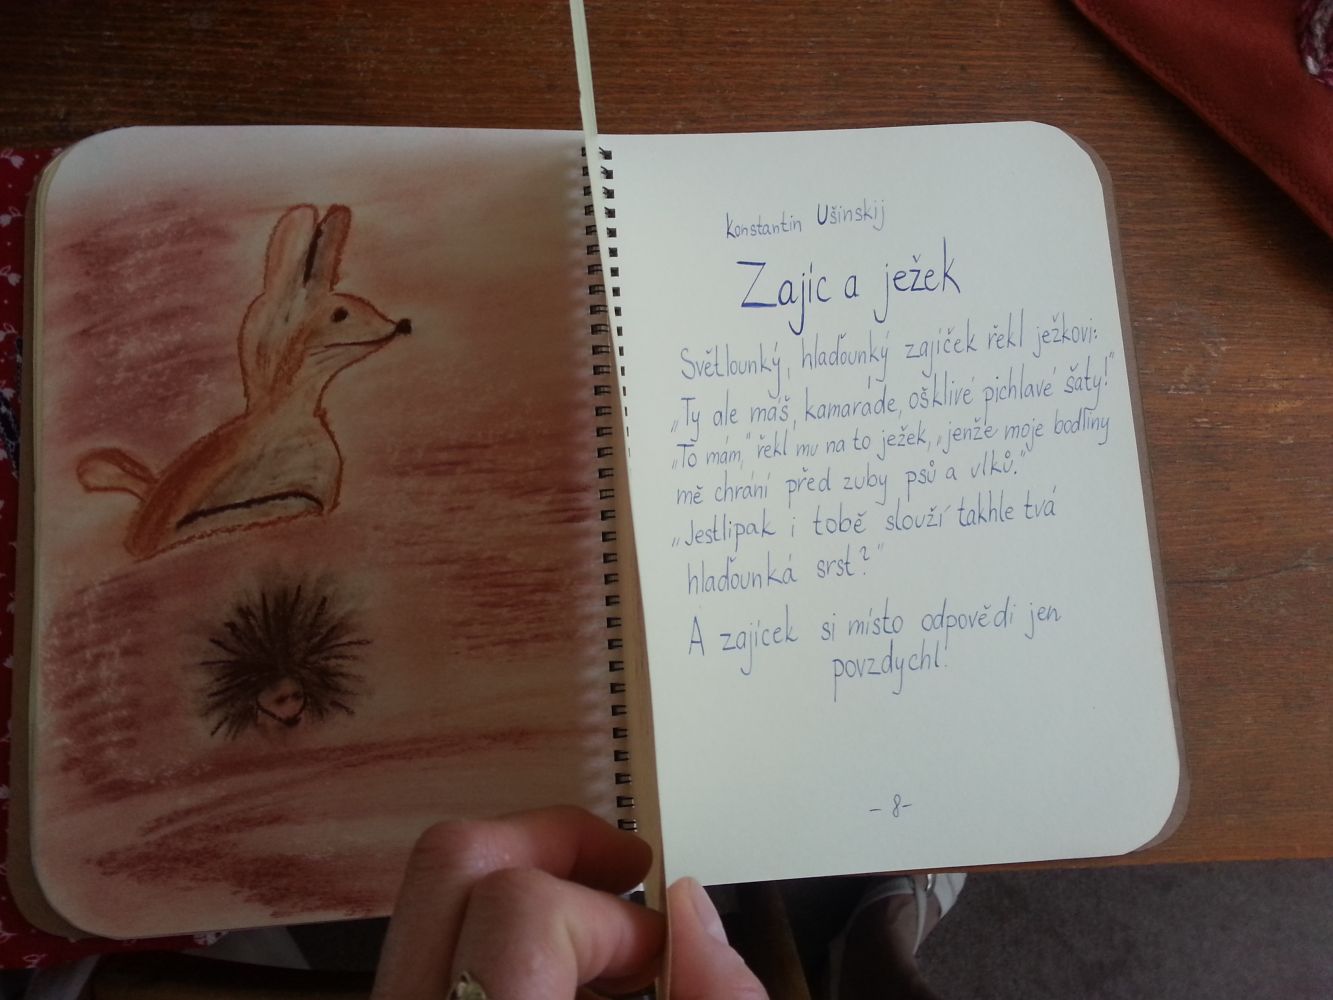 Konstantin Ušinskij
Zajíc a ježek
Světlounký, hlaďounký zajíček řekl ježkovi:
„Ty ale máš, kamaráde, ošklivé pichlavé šaty!"
„To mám," řekl mu na to ježek, „jenže moje bodliny
mě chrání před zuby psů a vlků."
„Jestlipak i tobě slouží takhle tvá
hlaďounká srst?"
A zajíček si místo odpovědi jen
povzdychl.
- 8 -